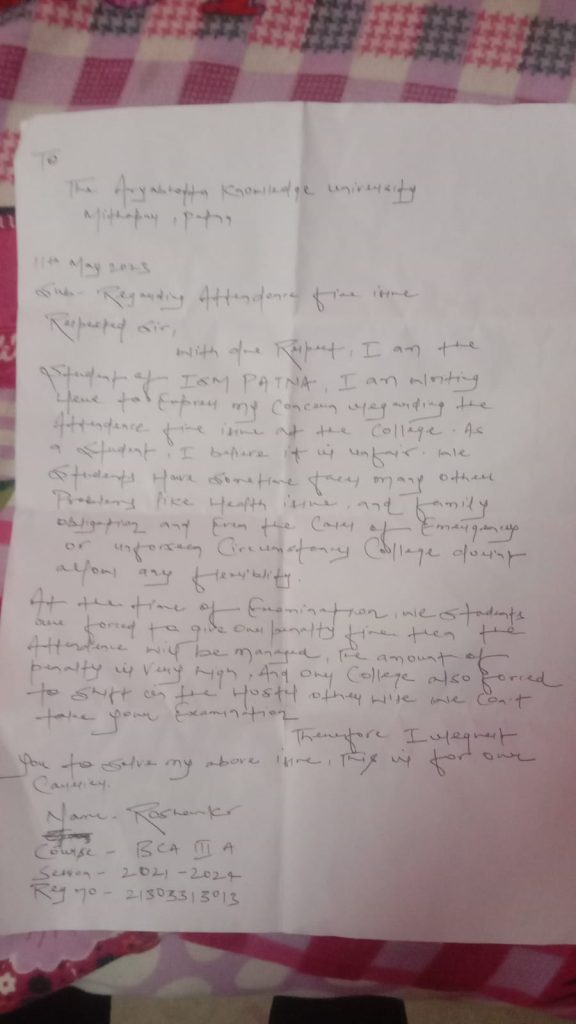 To
The Aryabhatta Knowledge University
Mithapur, Patna
11th May 2023
Sub- Regarding Attendence fine issue
Respected Sir,
With due Respect, I am the
Student of ISM PATNA, I am writing
here to Express my Concern regarding the
Attendence fine issue at the College. As
a student, I believe it is unfair. we
students have sometime face many other
Problems like Health issue, and family
obligation and Even the Cases of Emergency
or unforseen Circumstances College doesn't
allows any flexiblity.
At the time of Examination, we students
are forced to give our penalty fine then the
Attendence will be managed, The amount of
penalty is very high, And our College also forced
to shift in the Hostel other wise we Can't
take your Examination
Therefore I request
you to solve my above issue, This is for our
Name- Roshankr
Course - BCA III A
Session - 2021-2024
Reg no - 21303313013